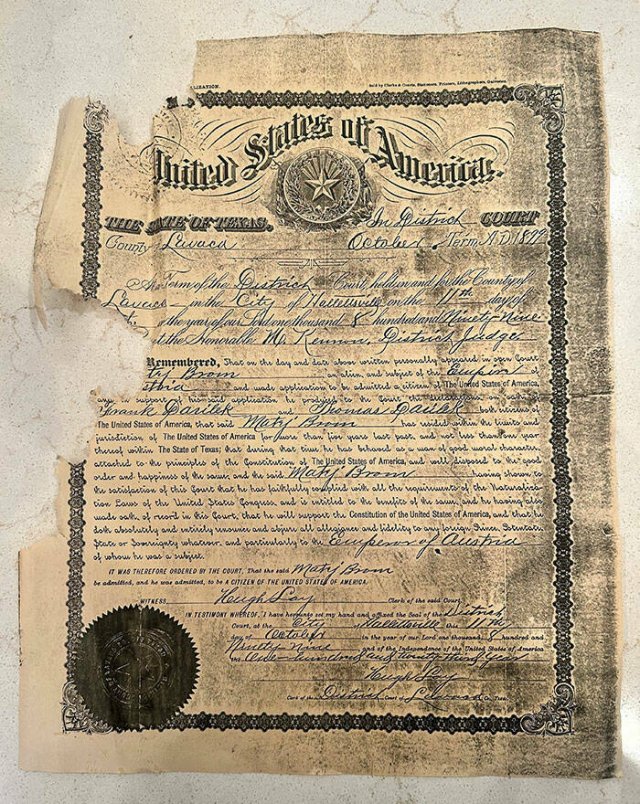 LIZATION.
Sold by Clarke & Courts, Stationers, Printers, Lithographers, Galveston.
United States of America.
THE STATE OF TEXAS, In District COURT
County Lavaca October Term A.D. 1899
Term of the District Court, holden in and for the County of
Lavaca in the City of Hallettsville on the 11th day of
the year of our Lord one thousand 8 hundred and Ninety Nine
the Honorable M. Kennon, District Judge
Remembered, That on the day and date above written personally appeared in open Court
ty Brom an alien, and subject of the Emperor of
tria and made application to be admitted a citizen of The United States of America,
in support of his said application, he produced to the Court the
Frank Darilek and Thomas Darilek both citizens of
The United States of America, that said Maty Brom has resided within the limits and
jurisdiction of The United States of America for more than five years last past, and not less than one year
thereof within The State of Texas; that during that time he has behaved as a man of good moral character,
attached to the principles of the Constitution of The United States of America, and well disposed to the good
order and happiness of the same; and the said Maty Brom having shown to
the satisfaction of this Court that he has faithfully complied with all the requirements of the Naturaliza-
tion Laws of the United States Congress, and is entitled to the benefits of the same, and he having also
made oath, of record in this Court, that he will support the Constitution of the United States of America, and that he
doth absolutely and entirely renounce and abjure all allegiance and fidelity to any foreign Prince, Potentate,
State or Sovereignty whatever, and particularly to the Emperor of Austria
of whom he was a subject.
IT WAS THEREFORE ORDERED BY THE COURT, That the said Maty Brom
be admitted, and he was admitted, to be A CITIZEN OF THE UNITED STATES OF AMERICA.
WITNESS, Hugh Lay Clerk of the said Court.
IN TESTIMONY WHEREOF, I have hereunto set my hand and affixed the Seal of the District
Court, at the City Hallettsville on 11th
day of October in the year of our Lord one thousand 8 hundred and
Ninety-Nine and of the Independence of the United States of America
the One-hundred and twenty third Year
Hugh Lay
Clerk of the District Court of Lavaca Co. Texas.